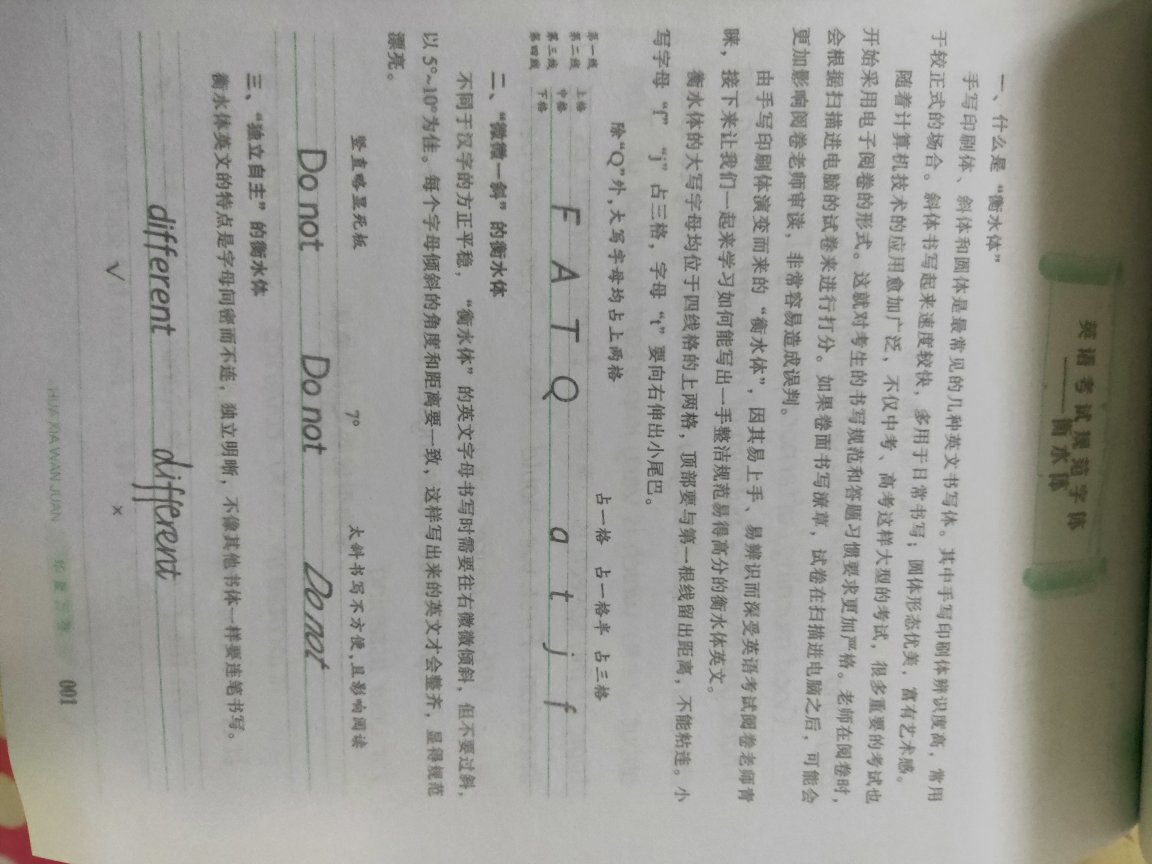 英语考试规范字体
——衡水体
一、什么是“衡水体”
手写印刷体、斜体和圆体是最常见的几种英文书写体。其中手写印刷体辨识度高，常用
于较正式的场合。斜体书写起来速度较快，多用于日常书写；圆体形态优美，富有艺术感。
随着计算机技术的应用愈加广泛，不仅中考、高考这样大型的考试，很多重要的考试也
开始采用电子阅卷的形式。这就对考生的书写规范和答题习惯要求更加严格。老师在阅卷时，
会根据扫描进电脑的试卷来进行打分。如果卷面书写潦草，试卷在扫描进电脑之后，可能会
更加影响阅卷老师审读，非常容易造成误判。
由手写印刷体演变而来的“衡水体”，因其易上手、易辨识而深受英语考试阅卷老师青
睐，接下来让我们一起来学习如何能写出一手整洁规范易得高分的衡水体英文。
衡水体的大写字母均位于四线格的上两格，顶部要与第一根线留出距离，不能粘连。小
写字母“f”“j”占三格，字母“t”要向右伸出小尾巴。
除“Q”外，大写字母均占上两格 占一格 占一格半 占三格
第一线
上格
第二线
中格
第三线
下格
第四线
F A T Q a t j f
二、“微微一斜”的衡水体
不同于汉字的方正平稳，“衡水体”的英文字母书写时需要往右微微倾斜，但不要过斜，
以 5°~10°为佳。每个字母倾斜的角度和距离要一致，这样写出来的英文才会整齐，显得规范
漂亮。
竖直略显死板 7° 太斜书写不方便，且影响阅读
Do not Do not Do not
三、“独立自主”的衡水体
衡水体英文的特点是字母间密而不连，独立明晰，不像其他书体一样要连笔书写。
different different
√ ×
HUA XIA WAN JUAN 华夏万卷 001